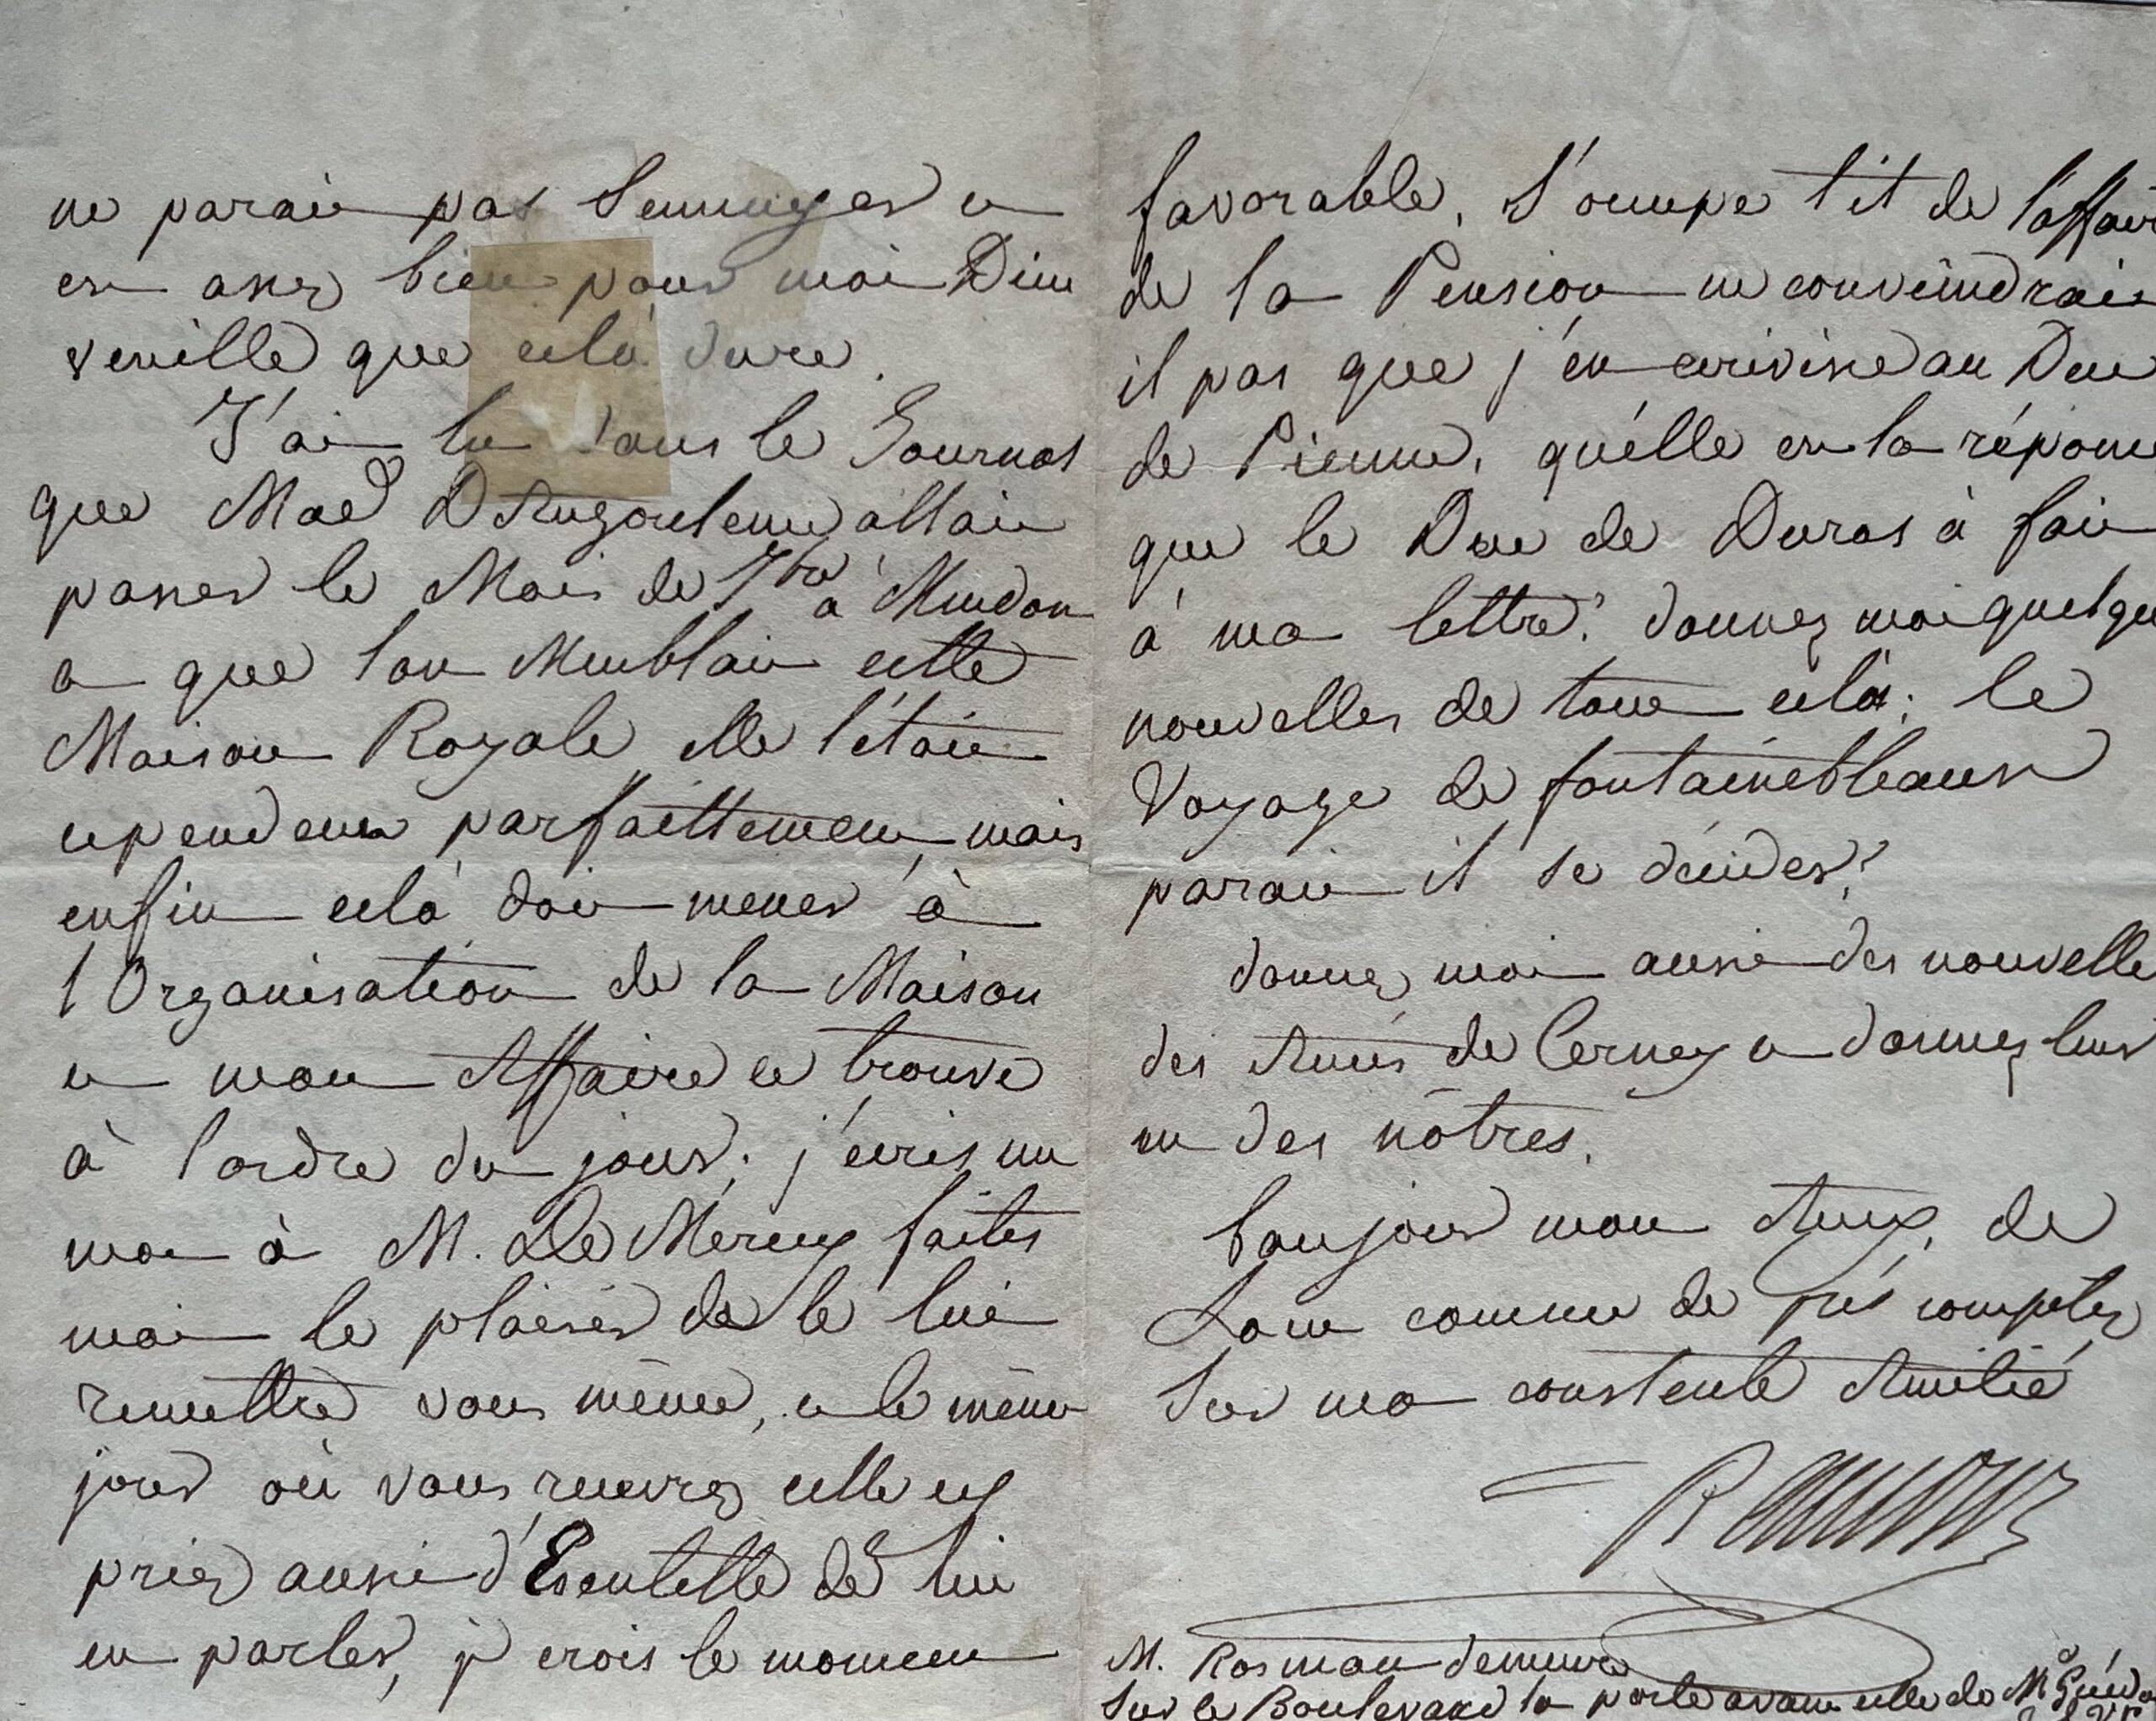 ne parait pas Sennuyer et
est assez bien pour moi Dieu
veuille que cela dure.
J'ai lu dans le Journal
que Mad^e D'Angouleme allait
passer le Mois de 7^bre à Meudon
et que lon Meublait cette
Maison Royale, elle l'était
cependent parfaittement, mais
enfin celà doit mener à
l'Organisation de la Maison
et mon Affaire ce trouve
à l'ordre du jour; j'écris un
mot à M. De Mercy faites
moi le plaisir de le lui
remettre vous même, et le même
jour où vous recevrez celle cy
priez aussi d' de lui
en parler, je crois le moment
favorable. S'occupe t'il de l'affaire
de la Pension ne conviendrait
il pas que j'en écrivisse au Duc
de Pienne, qu'elle est la réponse
que le Duc de Duras à fait
à ma lettre? donnez moi quelque
nouvelles de tout celà; le
Voyage de fontainebleaux
parait il se décider?
donnez moi aussi des nouvelle
des Amis de Cernay et donnez leur
en des nôtres.
bonjour mon Amy, de
Loin comme de près comptez
Sur ma constente Amitié
M. Rosman demeure
Sur le Boulevard la porte avant celle de M^r